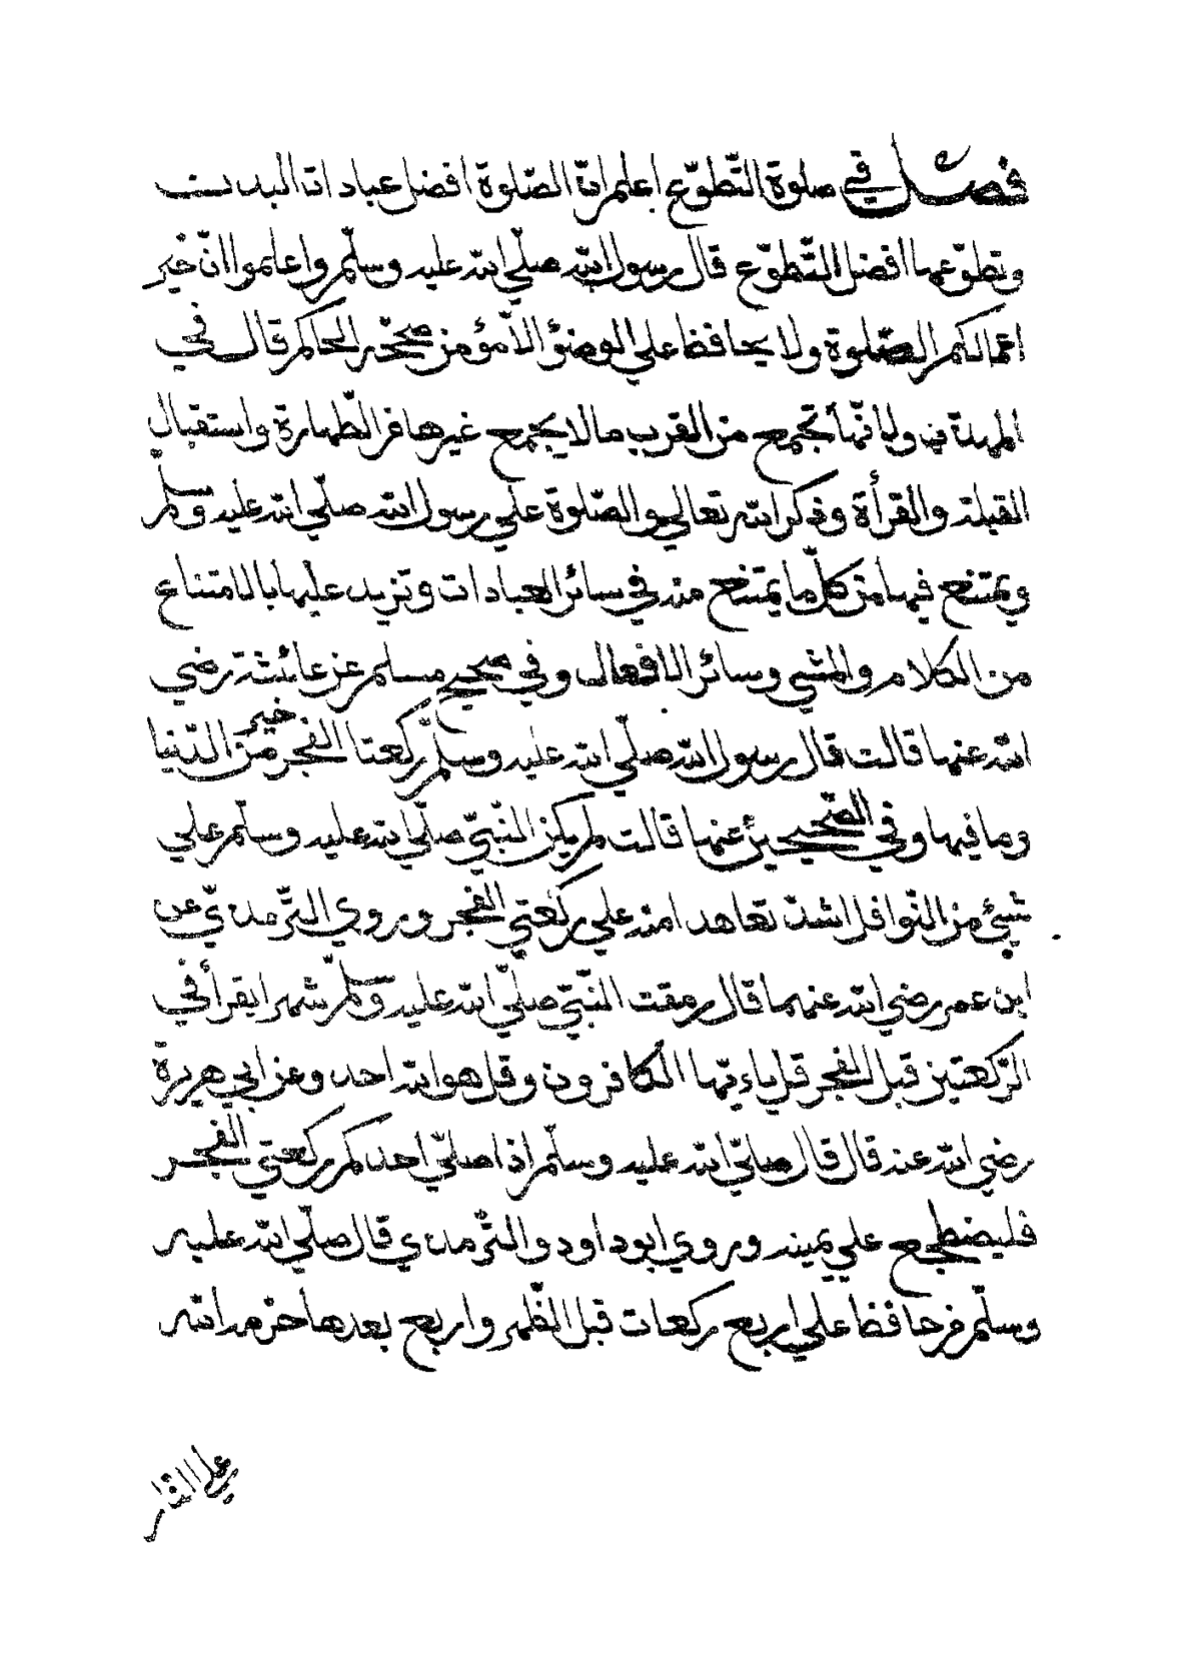 فصل في صلوة التّطوّع اعلم انّ الصّلوة افضل عبادات البدن
وتطوّعها افضل التّطوّع قال رسول الله صلّي الله عليه وسلّم واعلموا انّ خير
اعمالكم الصّلوة ولا يحافظ علي الوضؤ الا مؤمن صحّحه الحاكم قال في
المهمّة ولانّها تجمع من القرب ما لا يجمع غيرها من الطّهارة واستقبال
القبلة والقرأة وذكر الله تعالي والصّلوة علي رسول الله صلّي الله عليه وسلّم
ويمتنع فيها من كلّ ما يمتنع منه في سائر العبادات وتزيد عليها بالامتناع
من الكلام والمشي وسائر الافعال وفي صحيح مسلم عن عائشة رضي
الله عنها قالت قال رسول الله صلّي الله عليه وسلّم ركعتا الفجر خير من الدّنيا
وما فيها وفي الصّحيحين عنها قالت لم يكن النّبيّ صلّي الله عليه وسلّم علي
شيئ من النّوافل اشدّ تعاهدا منه علي ركعتي الفجر وروي التّرمذيّ عن
ابن عمر رضي الله عنهما قال رمقت النّبيّ صلّي الله عليه وسلّم شهرا يقرأ في
الرّكعتين قبل الفجر قل ياءيّها الكافرون وقل هو الله احد وعن ابي هريرة
رضي الله عنه قال قال صلّي الله عليه وسلّم اذا صلّي احدكم ركعتي الفجر
فليضطجع علي يمينه وروي ابو داود والتّرمذي قال صلّي الله عليه
وسلّم من حافظ علي اربع ركعات قبل الظّهر واربع بعدها حرّمه الله
علي النّار